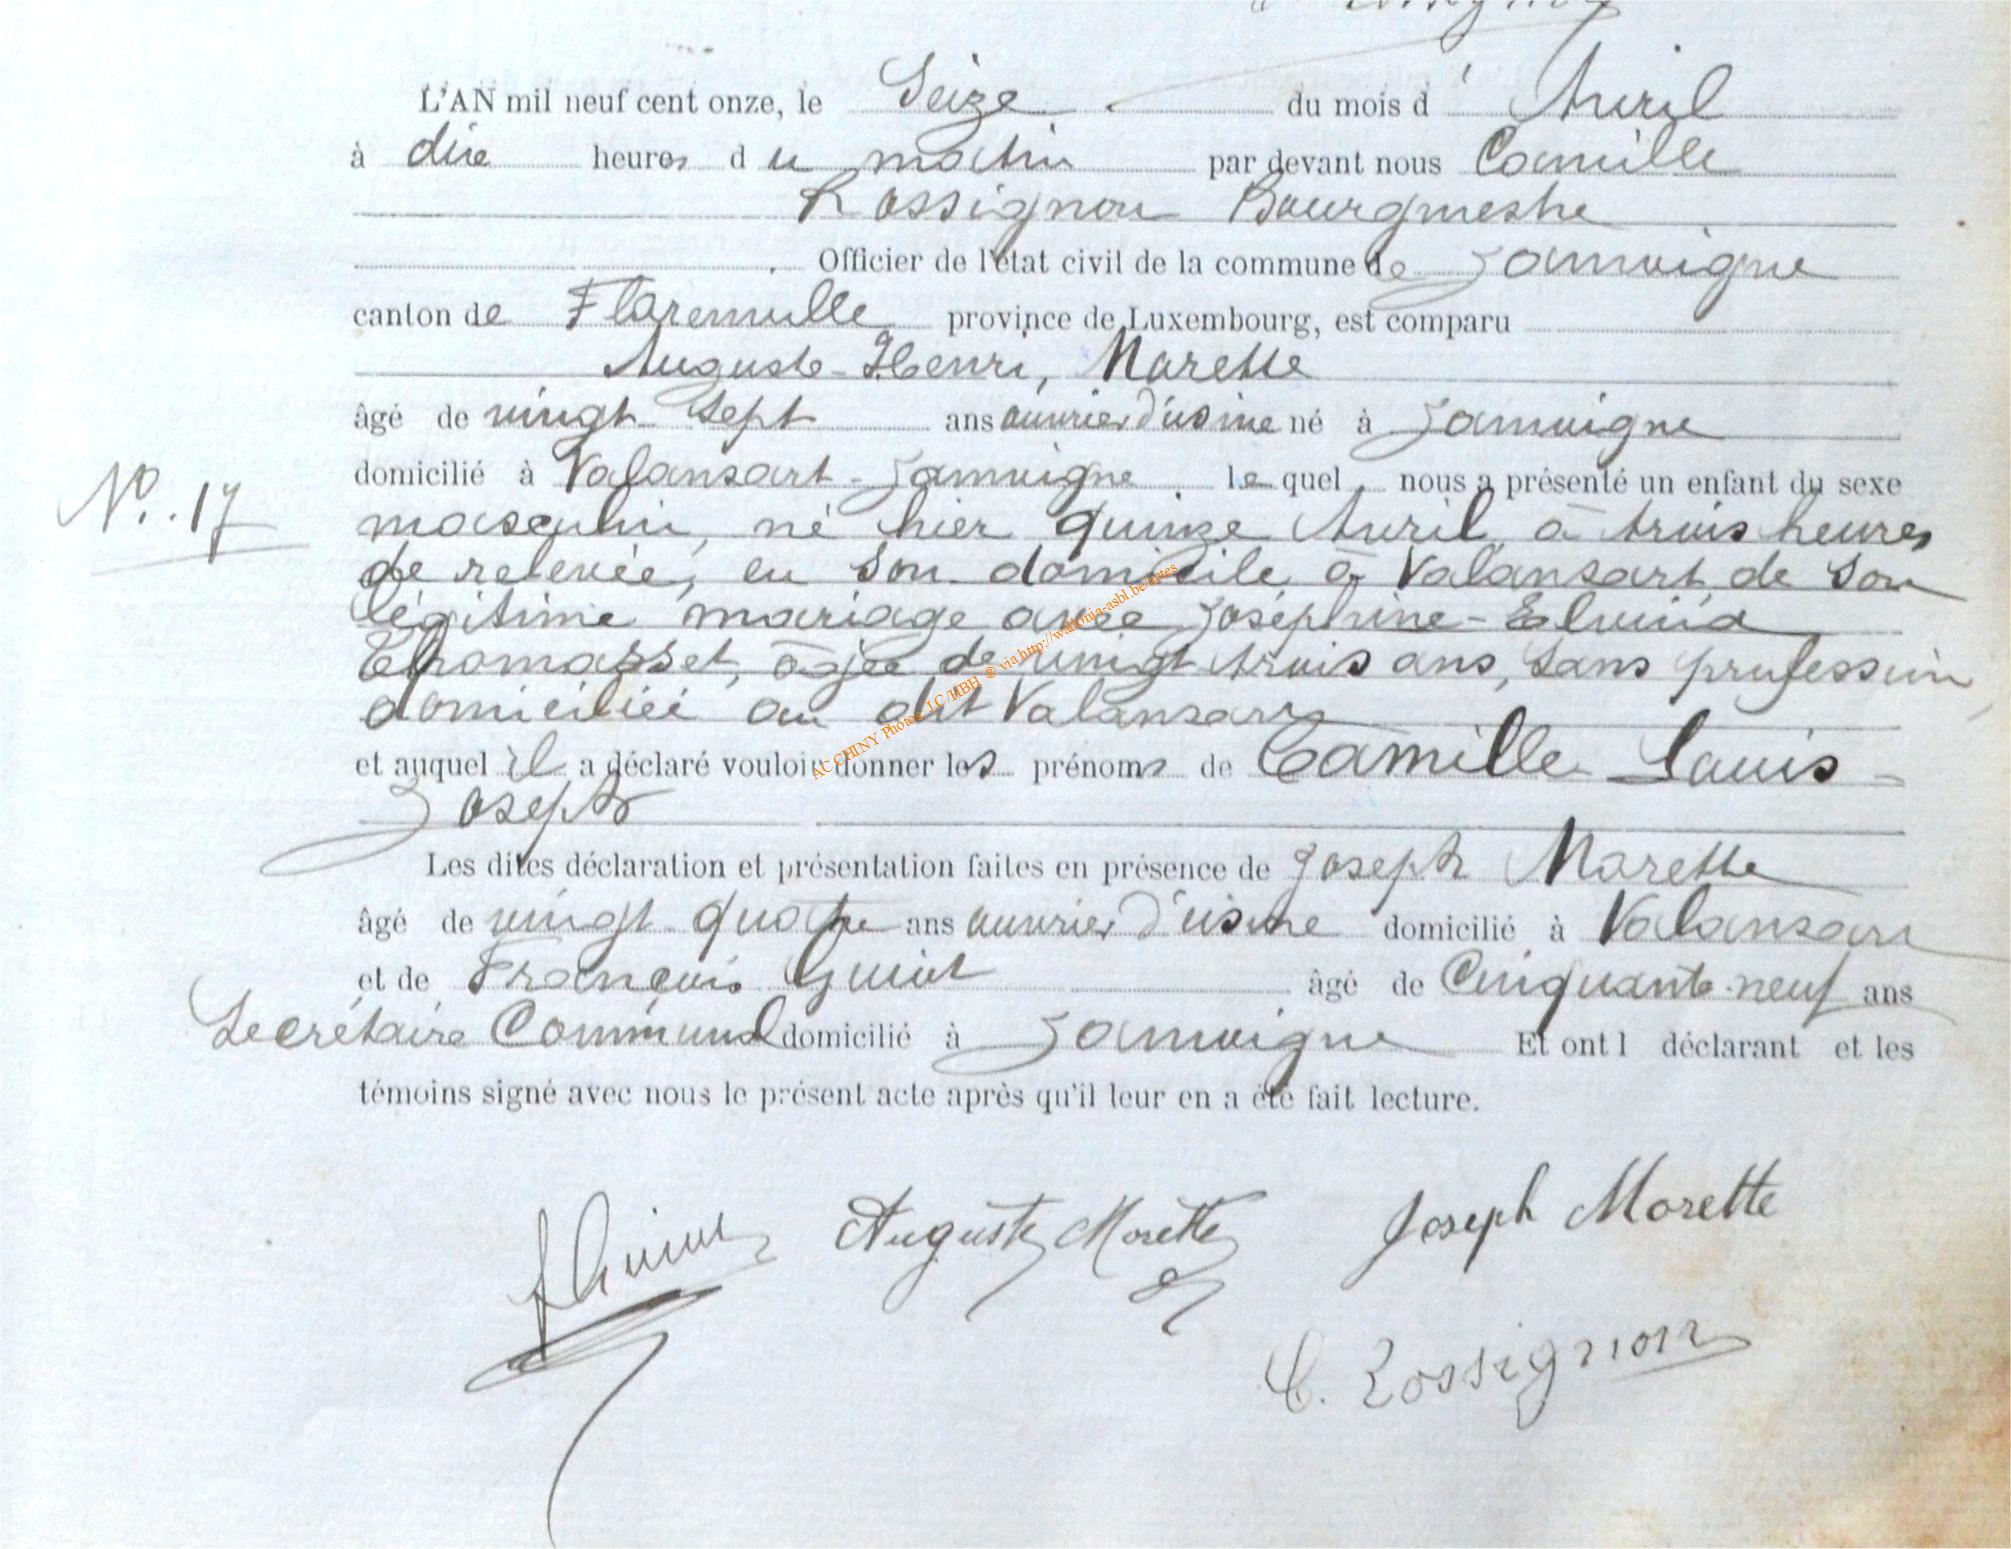 L'AN mil neuf cent onze, le Seize du mois d' Avril
à dix heures du matin par devant nous Camille
Rossignon Bourgmestre
Officier de l'état civil de la commune de Jamoigne
canton de Florenville province de Luxembourg, est comparu
Auguste-Henri, Morette
âgé de vingt sept ans ouvrier d'usine né à Jamoigne
domicilié à Valansart-Jamoigne lequel nous a présenté un enfant du sexe
N°. 17
masculin, né hier quinze Avril, à trois heures
de relevée, en son domicile à Valansart, de son
légitime mariage avec Joséphine-Elvina
Thomasset, âgée de vingt trois ans, sans profession,
domiciliée au dit Valansart
et auquel il a déclaré vouloir donner les prénoms de Camille Louis-
Joseph
Les dites déclaration et présentation faites en présence de Joseph Morette
âgé de vingt quatre ans ouvrier d'usine domicilié à Valansart
et de François Guiot âgé de Cinquante-neuf ans
Secrétaire Communal domicilié à Jamoigne Et ont l déclarant et les
témoins signé avec nous le présent acte après qu'il leur en a été fait lecture.
AC CHINY Photos I.C/HBH ® via http://wallonia-asbl.be/actes
Auguste Morette Joseph Morette
C. Rossignon